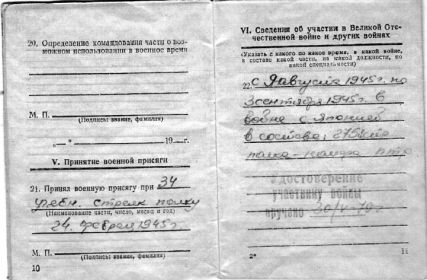 20. Определение командования части о воз-
можном использовании в военное время
М. П.
(Подпись, звание, фамилия)
„—“ 19 г.
V. Принятие военной присяги
21. Принял военную присягу при 34
учебн. стрелк полку
(Наименование части, число, месяц и год)
24. феврал 1945 г
М. П.
(Подпись, звание, фамилия)
10
VI. Сведения об участии в Великой Оте-
чественной войне и других войнах
(Указать с какого по какое время, в какой войне,
в составе какой части, на какой должности, по
какой специальности)
22. с 9 августа 1945 г. по
3 сентября 1945 г. в
войне с Японией
в составе, 275
полка - 
Удостоверение
участнику войны
вручено 30/V-79 г
2*
11